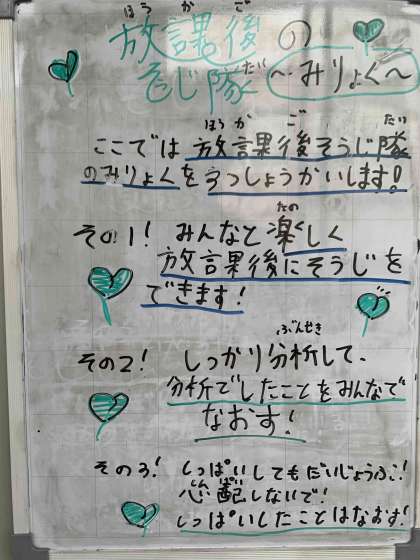 放課後の
そじ隊 〜みりょく〜
ここでは放課後そうじ隊
のみりょくを3つしょうかいします!
その1! みんなと楽しく
放課後にそうじを
できます!
その2! しっかり分析して、
分析でしたことをみんなで
なおす!
その3! しっぱいしてもだいじょうぶ!
心配しないで!
しっぱいしたことはなおす!